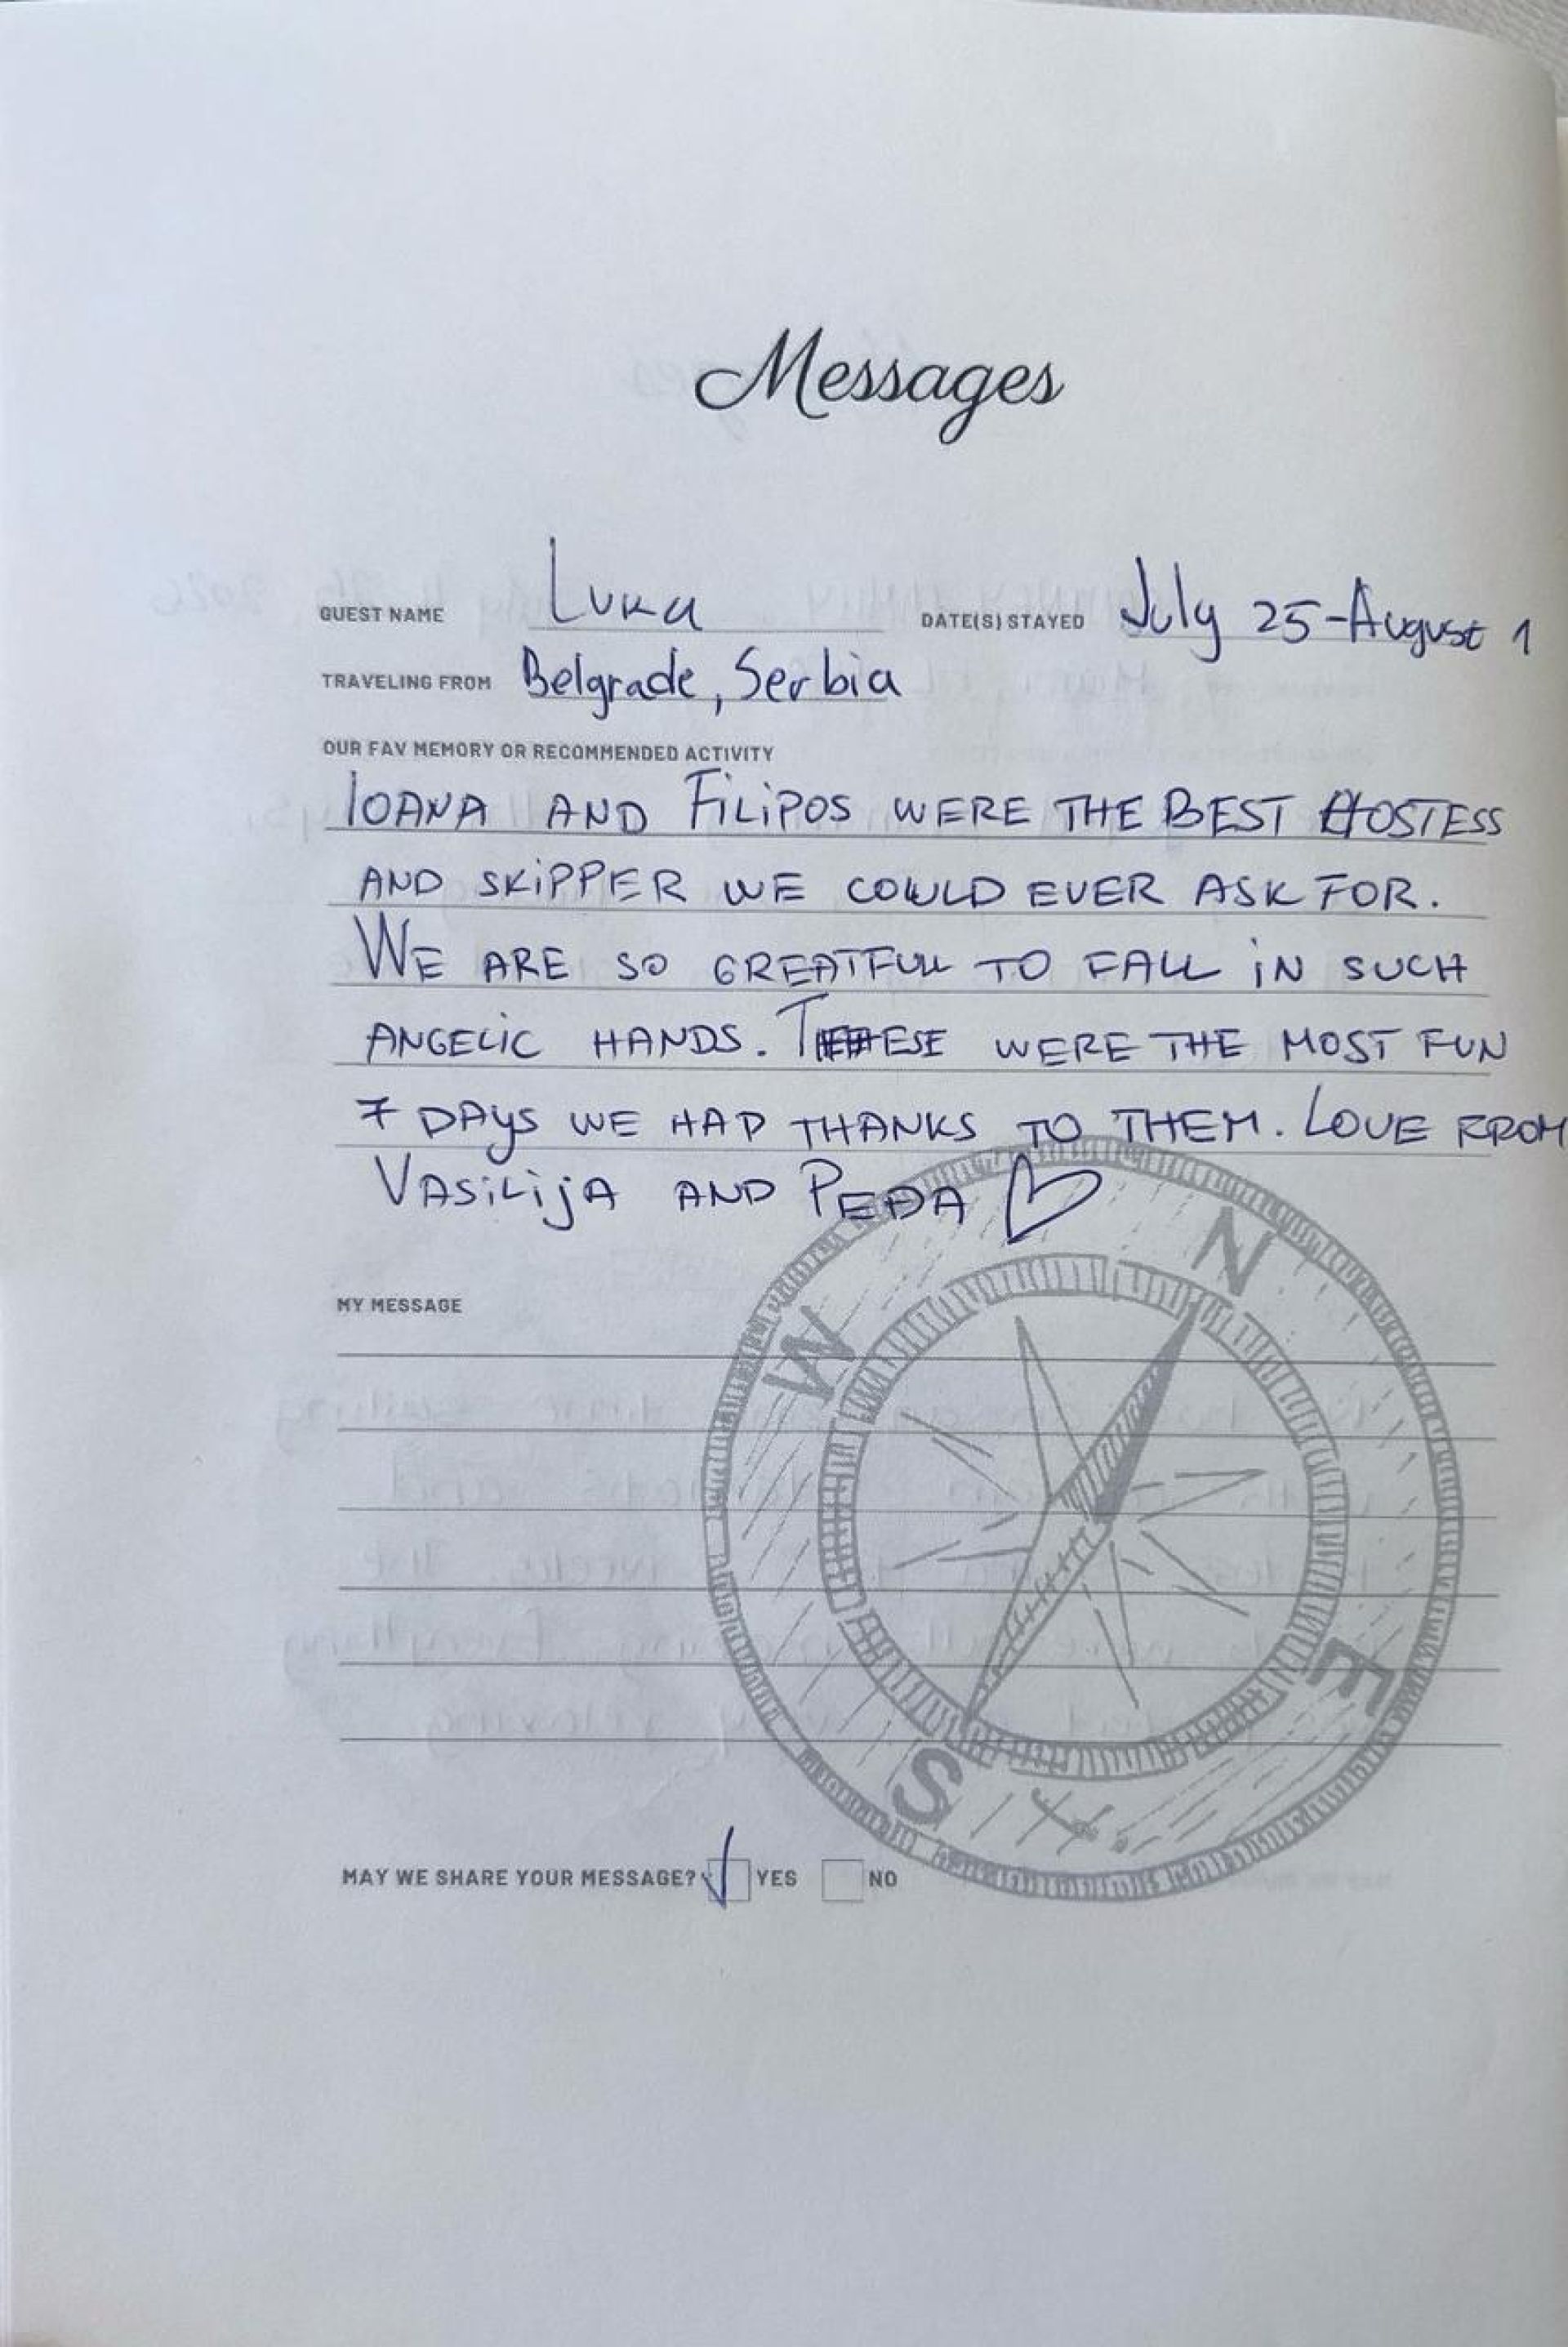 Messages
GUEST NAME Luka DATE(S) STAYED July 25-August 1
TRAVELING FROM Belgrade, Serbia
OUR FAV MEMORY OR RECOMMENDED ACTIVITY
IOANA AND FILIPOS WERE THE BEST HOSTESS
AND SKIPPER WE COULD EVER ASK FOR.
WE ARE SO GREATFULL TO FALL IN SUCH
ANGELIC HANDS. THESE WERE THE MOST FUN
7 DAYS WE HAD THANKS TO THEM. LOVE FROM
VASILIJA AND PEĐA
MY MESSAGE
N
W
E
S
MAY WE SHARE YOUR MESSAGE? YES NO